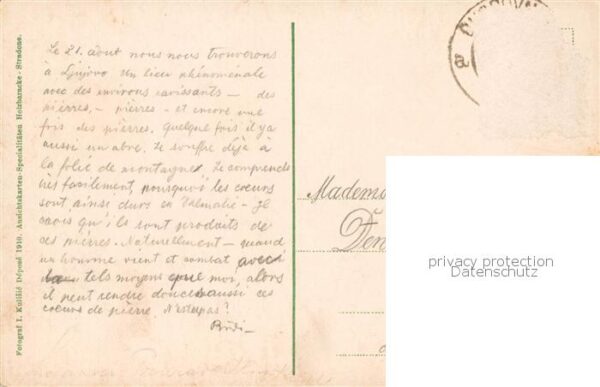 Fotograf I. Kulišić Dépond 1910. Ansichtskarten-Spezialitäten Holzbaracke - Stradone.
Le 21. aôut nous nous trouverons
à un lieu phénomenale
avec des environs ravissants — des
pierres, — pierres — et encore une
fois des pierres. Quelque fois il y a
aussi un abre. Je souffre déjà à
la folie de montagne. Je comprends
très facilement, pourquoi les coeurs
sont ainsi durs en Dalmatie — Je
crois qu'ils sont produits de
ces pierres. Naturellement — quand
un homme vient et combat avec
tels moyens que moi, alors
il peut rendre douce aussi ces
coeurs de pierre. N'estcepas?
Mademo
privacy protection
Datenschutz